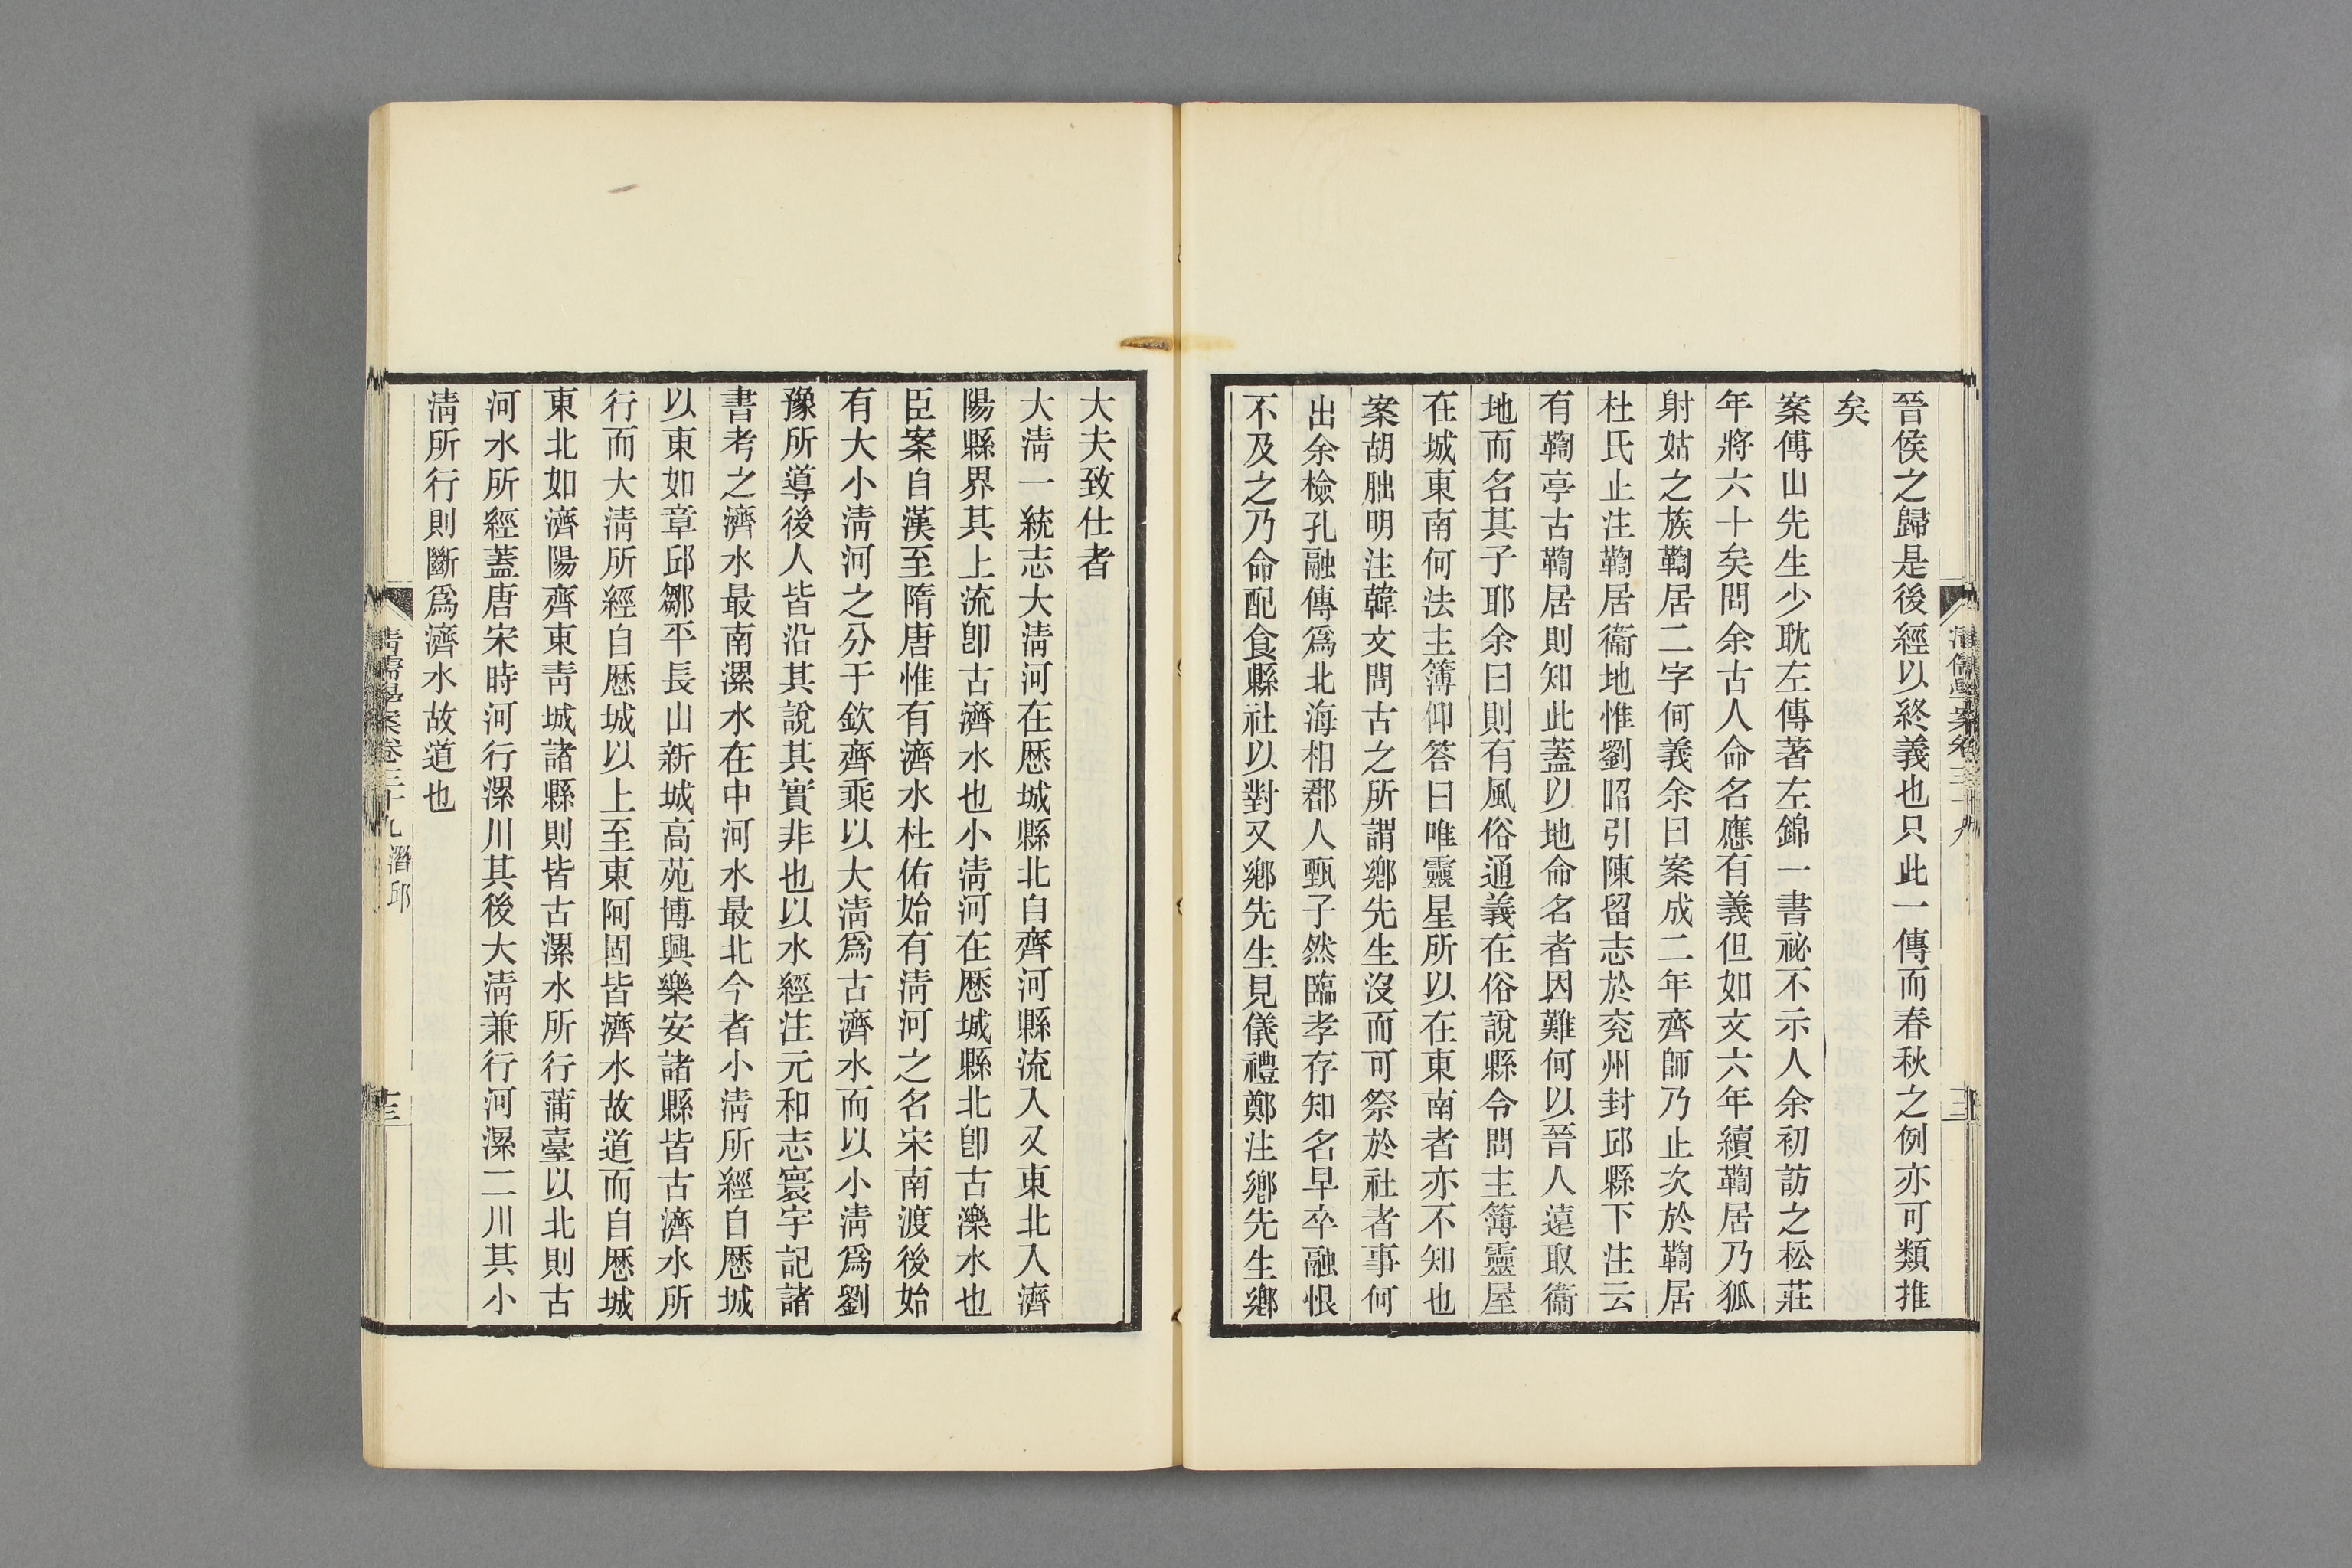 晉侯之歸是後經以終義也只此一傳而春秋之例亦可類推
矣
案傅山先生少耽左傳著左錦一書祕不示人余初訪之松莊
年將六十矣問余古人命名應有義但如文六年續鞫居乃狐
射姑之族鞫居二字何義余曰案成二年齊師乃止次於鞫居
杜氏止注鞫居衞地惟劉昭引陳留志於兖州封邱縣下注云
有鞫亭古鞫居則知此蓋以地命名者因難何以晉人遠取衞
地而名其子耶余曰則有風俗通義在俗說縣令問主簿靈屋
在城東南何法主簿仰答曰唯靈星所以在東南者亦不知也
案胡朏明注韓文問古之所謂鄉先生沒而可祭於社者事何
出余檢孔融傳爲北海相郡人甄子然臨孝存知名早卒融恨
不及之乃命配食縣社以對又鄉先生見儀禮鄭注鄉先生鄉
大夫致仕者
大淸一統志大淸河在歷城縣北自齊河縣流入又東北入濟
陽縣界其上流卽古濟水也小淸河在歷城縣北卽古濼水也
臣案自漢至隋唐惟有濟水杜佑始有淸河之名宋南渡後始
有大小淸河之分于欽齊乘以大淸爲古濟水而以小淸爲劉
豫所導後人皆沿其說其實非也以水經注元和志寰宇記諸
書考之濟水最南漯水在中河水最北今者小淸所經自歷城
以東如章邱鄒平長山新城高苑博興樂安諸縣皆古濟水所
行而大淸所經自歷城以上至東阿固皆濟水故道而自歷城
東北如濟陽齊東靑城諸縣則皆古漯水所行蒲臺以北則古
河水所經蓋唐宋時河行漯川其後大淸兼行河漯二川其小
淸所行則斷爲濟水故道也
淸儒學案卷三十九 潛邱